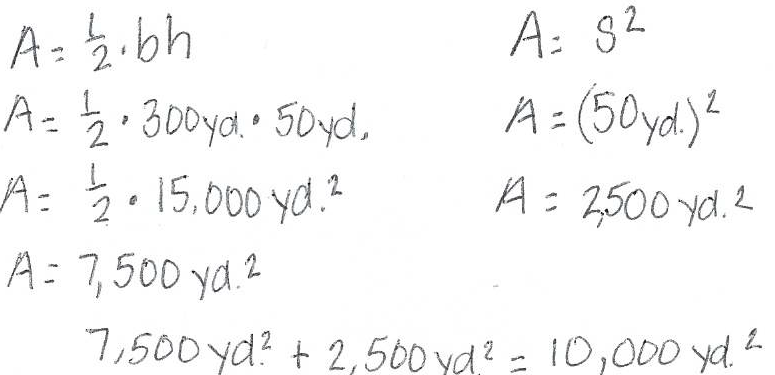 A = 1/2 · bh
A = 1/2 · 300yd. · 50yd.
A = 1/2 · 15,000 yd.²
A = 7,500 yd.²
A = s²
A = (50yd.)²
A = 2,500 yd.²
7,500 yd.² + 2,500 yd.² = 10,000 yd.²